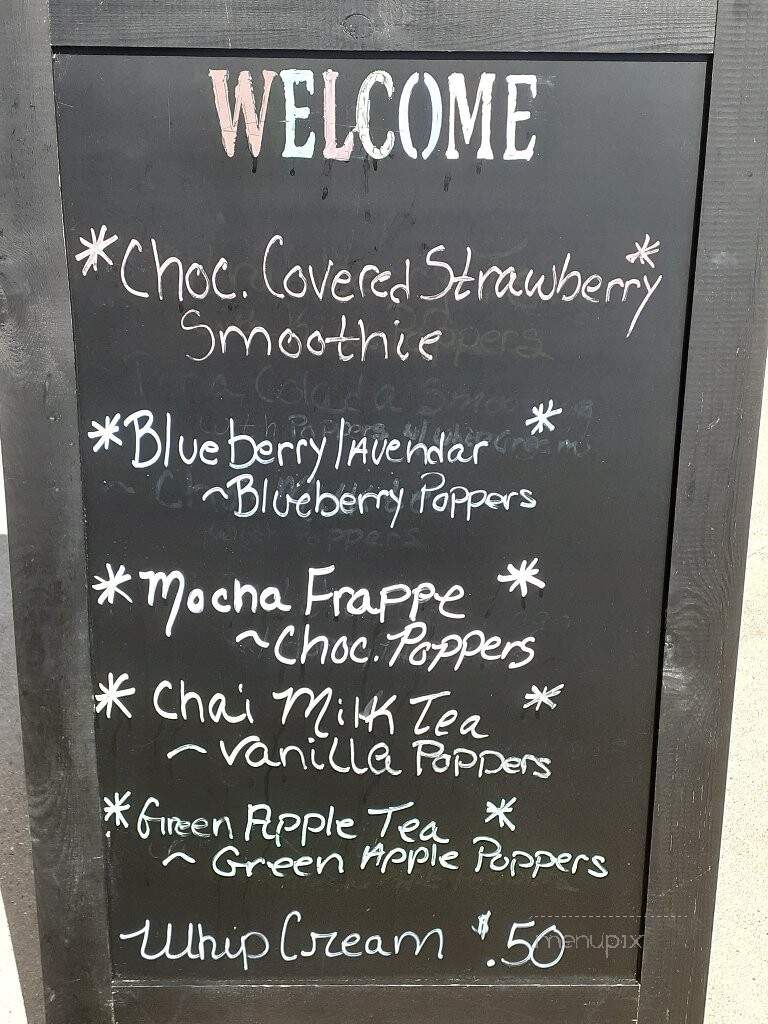 WELCOME
*Choc. Covered Strawberry*
Smoothie
*Blueberry lavendar *
~Blueberry Poppers
*Mocha Frappe *
~Choc. Poppers
* Chai Milk Tea *
~ vanilla Poppers
*Green Apple Tea *
~ Green Apple Poppers
Whip Cream $.50
menupix